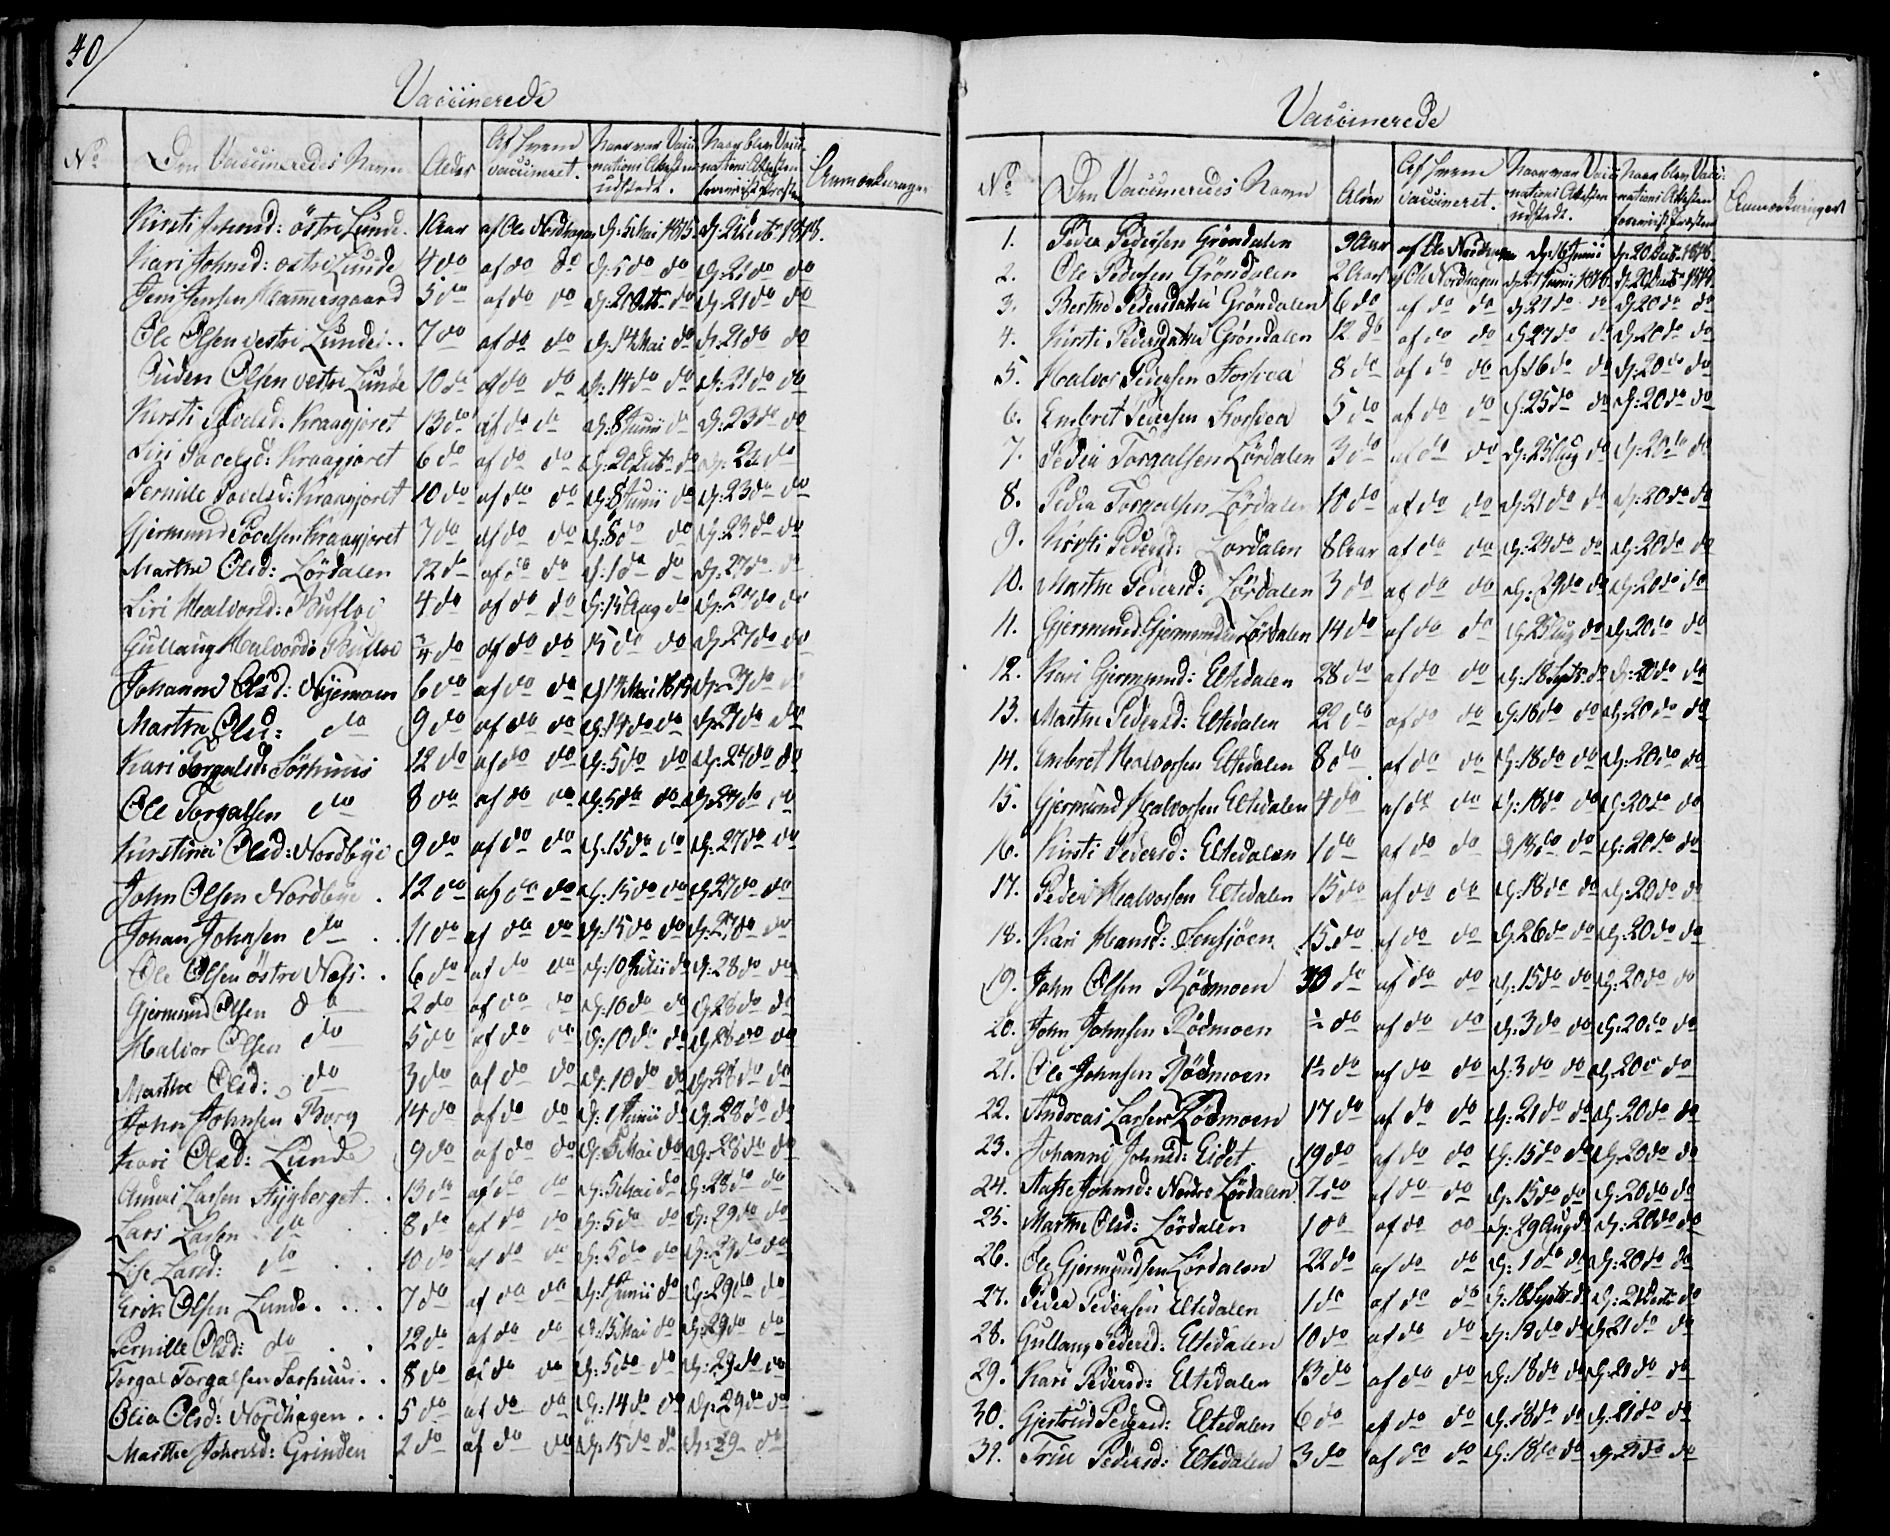 40
Vaccinerede
No | Den Vaccineredes Navn | Alder | Af hvem vaccineret. | Naar var Vaccinations Attesten udstedt. | Naar blev Vaccinations Attesten foreviist Præsten | Anmærkninger
Kirsti Johnsd: östre Lunde. 1 Aar af Ole Nordhagen d: 5 Mai 1815. d: 21 Decbr 1818.
Kari Johnsd: östre Lunde 4 do af do do d: 5 do do d: 21 do do
Jens Jensen Hammersgaard 5 do af do do d: 20 do d: 21 do do
Ole Olsen vestre Lunde. 7 do af do do d: 14 Mai do d: 21 do do
Auden Olsen vestre Lunde 10 do af do do d: 14 do do d: 21 do do
Kirsti Povelsd: Kraagjöret 13 do af do do d: 8 Junii do d: 23 do do
Siri Povelsd: Kraagjöret 6 do af do do d: 20 do d: 23 do
Pernille Povelsd: Kraagjöret 10 do af do do d: 8 Junii do d: 23 do do
Gjermund Povelsen Kraagjöret 7 do af do do d: 8 do do d: 23 do do
Marthe Olsd: Lördalen 12 do af do do d: 1 do do d: 27 do do
Siri Halvorsd: 4 do af do do d: 15 Aug do d: 27 do do
Gullaug Halvorsd: 3/4 do af do do 15 do do d: 27 do do
Johanne Olsd: Nyemoen 6 do af do do d 14 Mai d: 27 do do
Marthe Olsd: do 9 do af do do d: 14 do do d: 27 do do
Kari Torgalsd: Sörhuus 12 do af do do d: 5 do do d: 27 do do
Ole Torgalsen do 8 do af do do d: 5 do do d: 27 do do
Kirstine Olsd: Nordbye 9 do af do do d: 15 do do d: 27 do do
John Olsen Nordbye . 12 do af do do d: 15 do do d: 27 do do
Johan Johnsen do . . 11 do af do do d: 15 do do d: 27 do do
Ole Olsen östre Næss. . 6 do af do do d: 10 Julii do d: 28 do do
Gjermund Olsen do 2 do af do do d: 10 do do d: 28 do do
Halvor Olsen do 5 do af do do d: 10 do do d: 28 do do
Marthe Olsd: do 3 do af do do d: 10 do do d: 28 do do
John Johnsen Borg 14 do af do do d: 1 Junii do d: 28 do do
Kari Olsd: Lunde 9 do af do do d: 5 Mai do d: 28 do do
Larsen Hyberget. . 13 do af do do d: 5 Mai do d: 28 do do
Lars Larsen do 8 do af do do d: 5 do do d: 29 do do
Lise Larsd: do . . 10 do af do do d: 5 do do d: 29 do do
Erik Olsen Lunde. . . . 7 do af do do d: 1 Junii do d: 29 do do
Pernille Olsd: do . . 12 do af do do d: 15 Mai do d: 29 do do
Torgal Torgalsen Sørhuus. . 8 do af do do d: 5 do do d: 29 do do
Olia Olsd: Nordhagen . . 5 do af do do d: 14 do do d: 29 do do
Marthe Johnsd: Grinden 2 do af do do d: 15 do do d: 29 do
Vaccinerede
No | Den Vaccineredes Navn | Alder | Af hvem vaccineret. | Naar var Vaccinations Attesten udstedt. | Naar blev Vaccinations Attesten foreviist Præsten | Anmærkninger
1. Peder Pedersen Gröndalen 9 Aar af Ole Nordhagen d: 16 Junii d: 20 Decbr
2. Ole Pedersen Gröndalen 2 Aar af Ole Nordhagen d: 27 Junii d: 20 Decbr
3. Berthe Pedersdatter Gröndalen 6 do af do do d: 27 do do d: 20 do do
4. Kirsti Pedersdatter Gröndalen 12 do af do do d: 27 do do d: 20 do do
5. Halvor Pedersen 8 do af do do d: 16 do do d: 20 do do
6. Embret Pedersen 5 do af do do d: 25 do do d: 20 do do
7. Peder Torgalsen Lördalen 3 do af do do d: 25 Aug do d: 20 do do
8. Peder Torgalsen Lördalen 10 do af do do d: 21 do do d: 20 do do
9. Kirsti Pedersd: Lördalen 8 Aar af do do d: 29 do do d: 20 do do
10. Marthe Pedersd: Lördalen 3 do af do do d: 29 do do d: 20 do do
11. Gjermund Gjermundsen Lördalen 14 do af do do d: 25 Aug do d: 20 do do
12. Kari Gjermund: Eltedalen 28 do af do do d: 18 Septr do d: 20 do do
13. Marthe Pedersd: Eltedalen 22 do af do do d: 18 do do d: 20 do do
14. Embret Halvorsen Eltedalen 8 do af do do d: 18 do do d: 20 do do
15. Gjermund Halvorsen Eltedalen 4 do af do do d: 18 do do d: 20 do do
16. Kirsti Pedersd: Eltedalen 1 do af do do d: 18 do do d: 20 do do
17. Peder Halvorsen Eltedalen 15 do af do do d: 18 do do d: 20 do do
18. Kari Hansd: Sensjöen 15 do af do do d: 26 do do d: 20 do do
19. John Olsen Rödmoen 30 do af do do d: 15 do do d: 20 do do
20. John Johnsen Rödmoen 1/2 do af do do d: 3 do do d: 20 do do
21. Ole Johnsen Rödmoen 1 1/2 do af do do d: 3 do do d: 20 do do
22. Andreas Larsen Rödmoen 17 do af do do d: 21 do do d: 20 do do
23. Johanne Johnsd: Eidet 19 do af do do d: 15 do do d: 20 do do
24. Aasse Johnsd: Nordre Lördalen 7 do af do do d: 15 do do d: 20 do do
25. Marthe Olsd: Lördalen 1 do af do do d: 29 Aug do d: 20 do do
26. Ole Gjermundsen Lördalen 22 do af do do d: 1 do do d: 20 do do
27. Peder Pedersen Eltedalen 1 do af do do d: 18 Septr do d: 21 Decbr do
28. Gullaug Pedersd: Eltedalen 10 do af do do d: 18 do do d: 21 do do
29. Kari Pedersd: Eltedalen 13 do af do do d: 18 do do d: 21 do do
30. Gjertrud Pedersd: Eltedalen 6 do af do do d: 18 do do d: 21 do do
31. Trine Pedersd: Eltedalen 3 do af do do d: 18 do do d: 21 do do